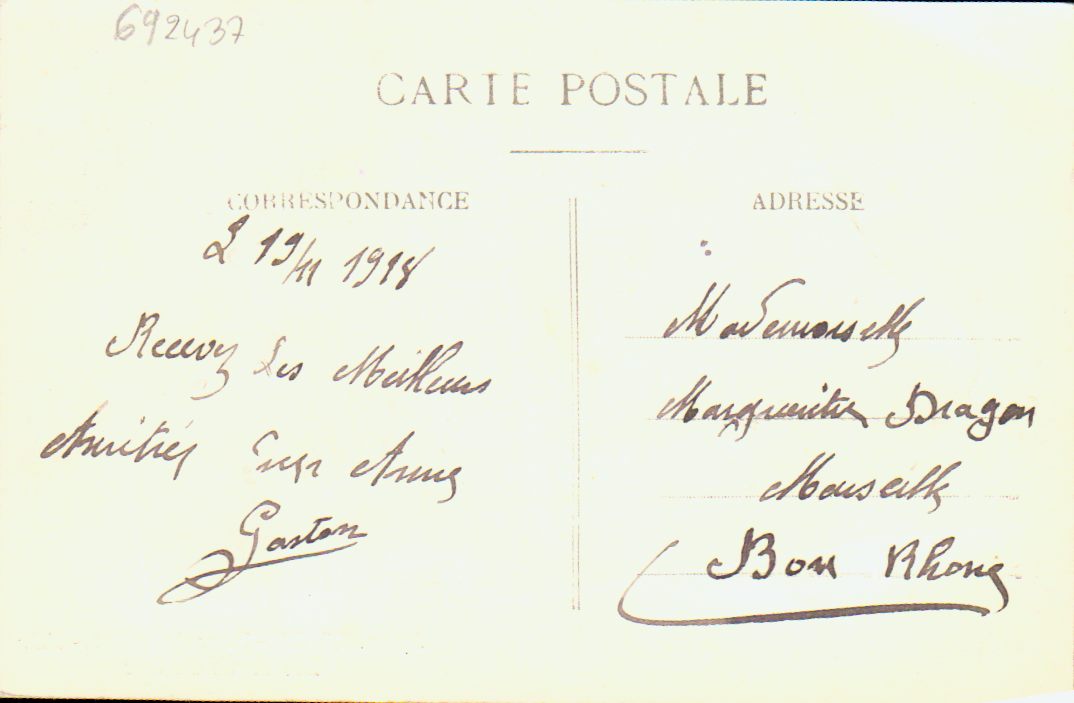 692437
CARTE POSTALE
CORRESPONDANCE
ADRESSE
19/11 1918
Recevez Les Meilleurs
Amitiés
Gaston
Mademoiselle
Marguerite Dragon
Marseille
Bou Rhone